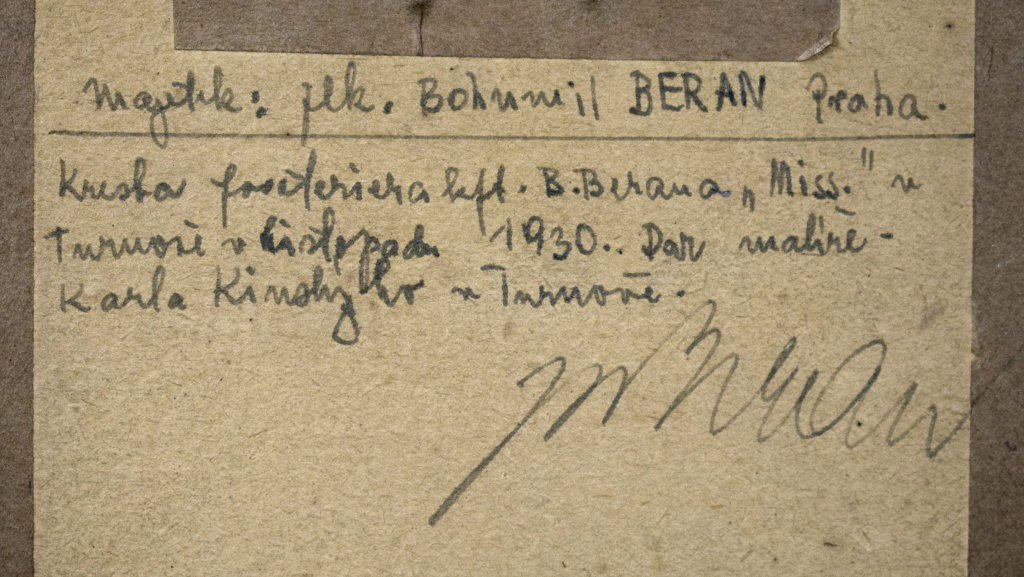 Majetek: plk. Bohumil BERAN Praha.
Kresba foxteriera kpt. B. Berana „Miss." v
Turnově v listopadu 1930. Dar malíře-
Karla Kinského v Turnově.